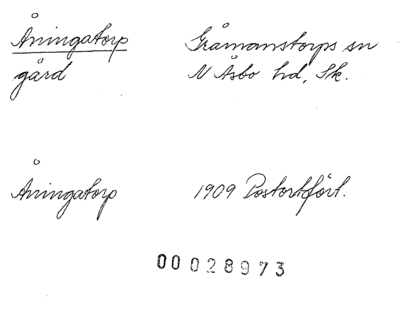 Åningatorp Gråmanstorps sn
gård N Åsbo hd, Sk.
Åningatorp 1909 Postortfört.
00028973